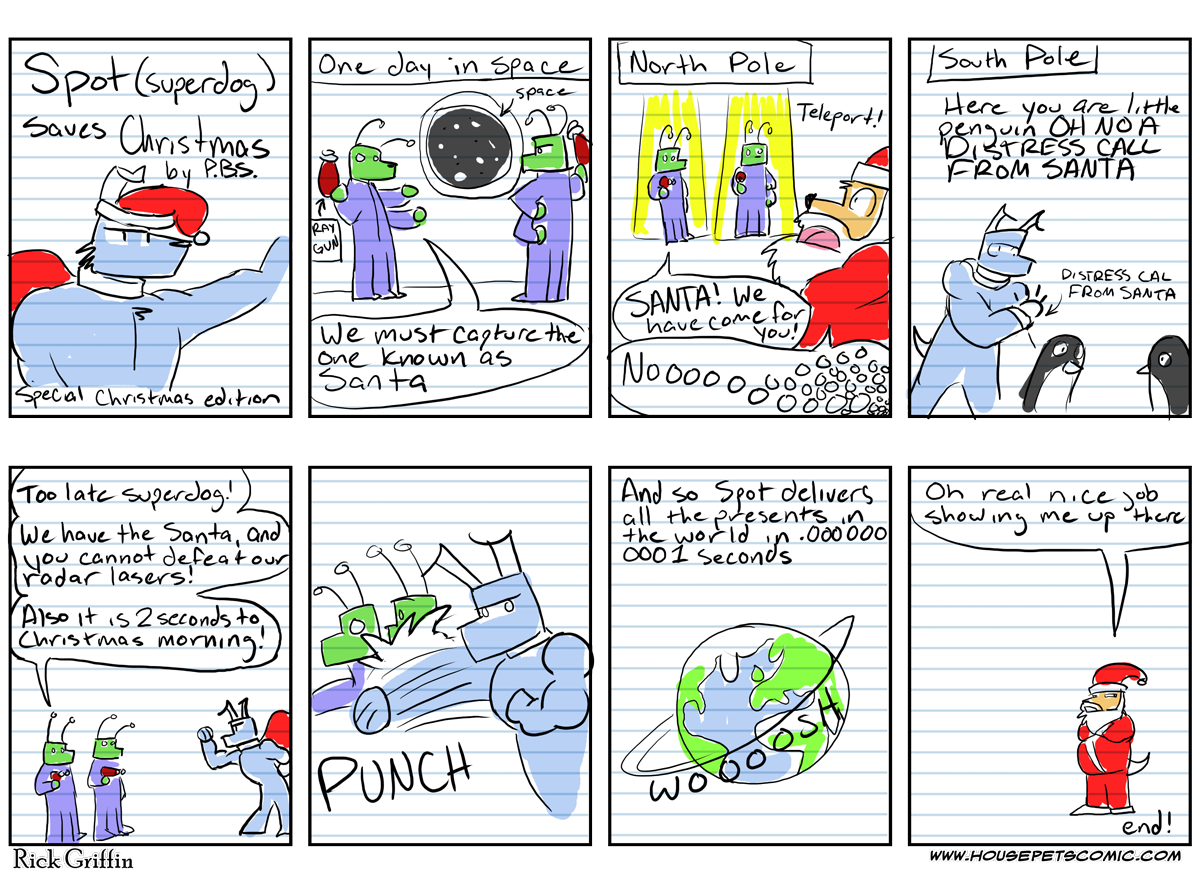 Spot (superdog)
saves Christmas
by P.B.S.
Special Christmas edition
One day in space
space
RAY
GUN
We must capture the
one known as
Santa
North Pole
Teleport!
SANTA! We
have come for
you!
Noooooooooooooooooooo
South Pole
Here you are little
penguin OH NO A
DISTRESS CALL
FROM SANTA
DISTRESS CAL
FROM SANTA
Too late superdog!
We have the Santa, and
you cannot defeat our
radar lasers!
Also it is 2 seconds to
Christmas morning!
PUNCH
And so Spot delivers
all the presents in
the world in .000000
0001 seconds
WOOOOSH
Oh real nice job
showing me up there
end!
Rick Griffin
WWW.HOUSEPETSCOMIC.COM